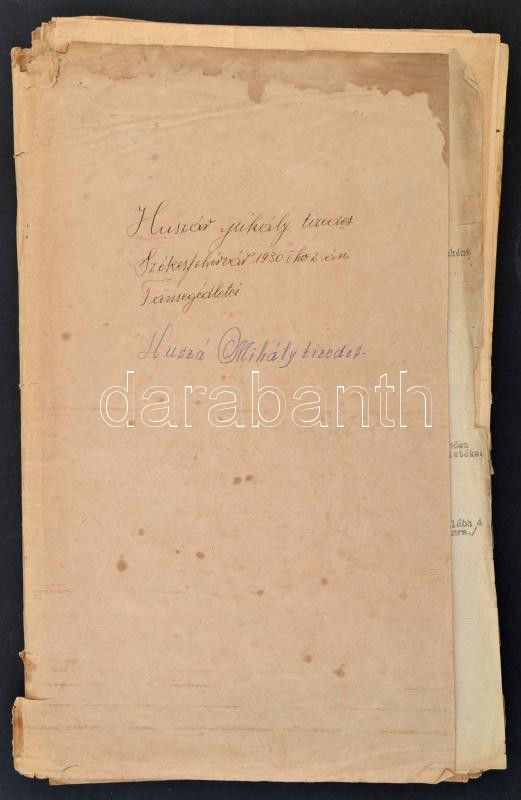 Huszár Mihály tizedes
Székesfehérvár 1930 I hó 2.án
Tansegédletei
Huszá Mihály tizedes.
darabanth
ként
eden
letéke:
lább 4
mra./